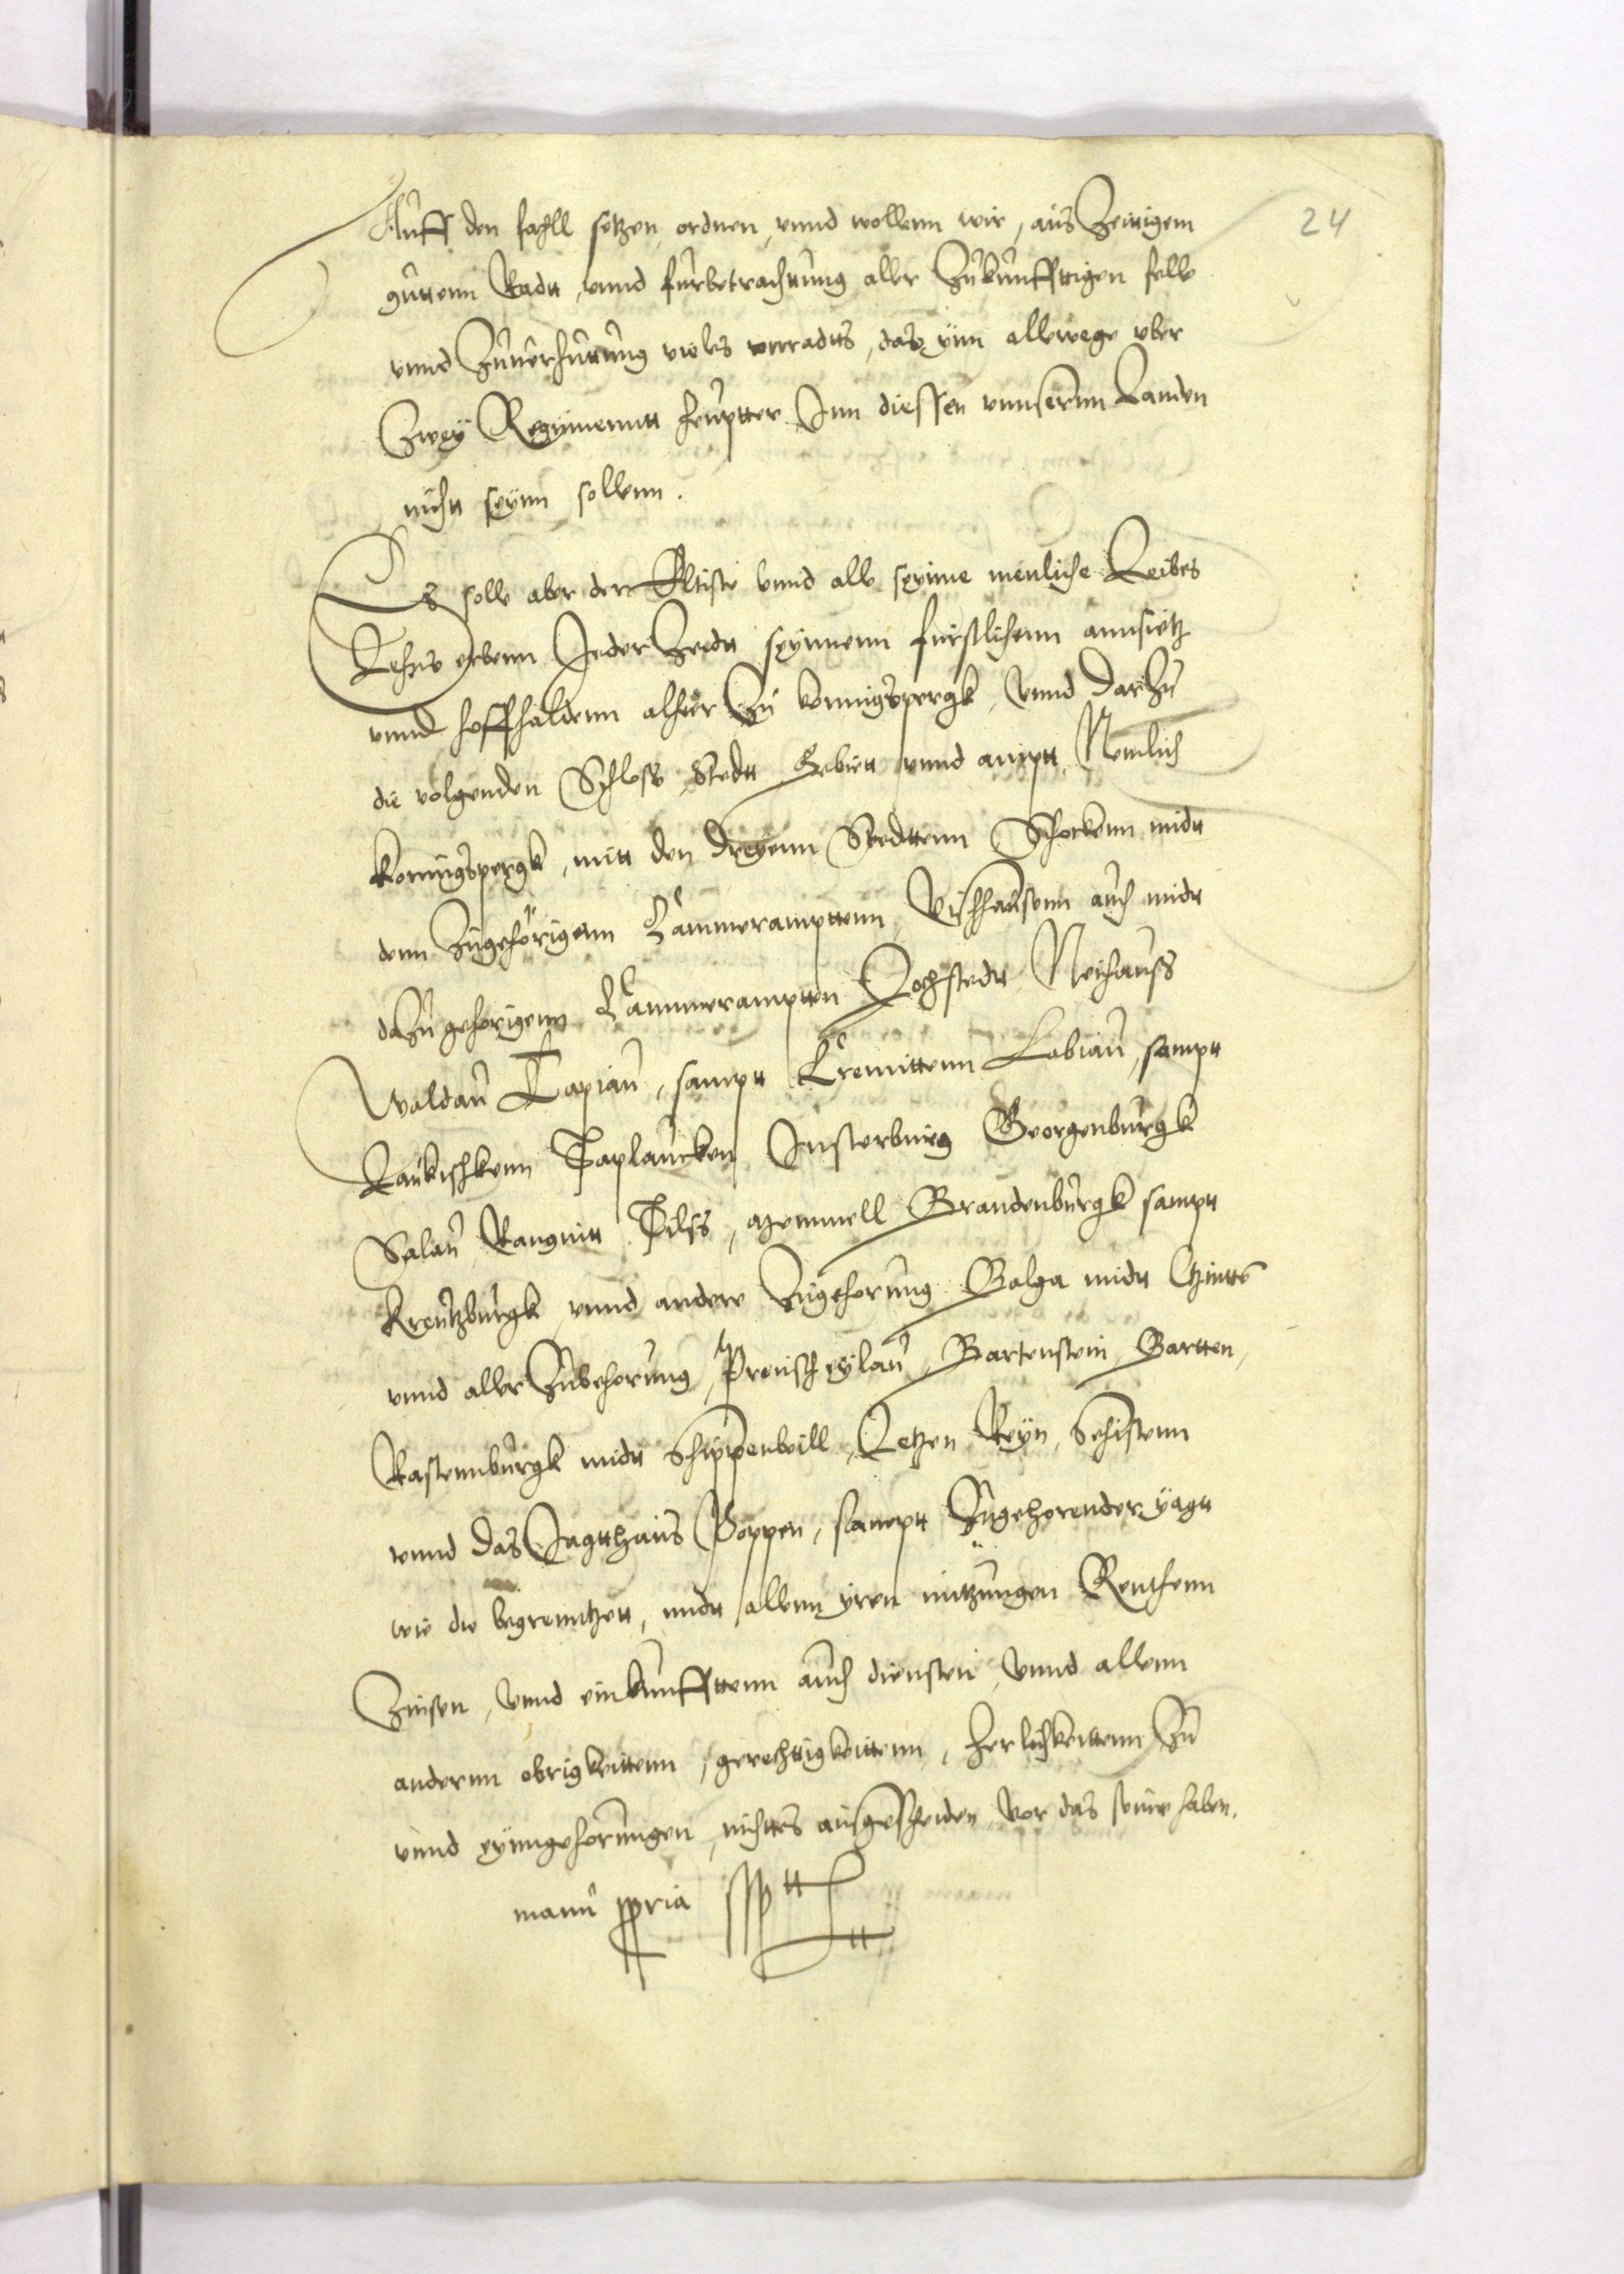 24
Auff den fahll setzen, ordnen, vnnd wollenn wir, aus Zeittigem
guttenn Radtt, vnnd furbetrachttung aller Zukunfftigen felle
vnnd Zuuerhuttung vieles vnradtts, das ynn allewege vber
Zwey Regimenntt heuptter Inn diessen vnnserenn Landen
nicht seynn sollenn.
Es solle aber der Eltiste vnnd alle seynne menliche Leibes
Lehns erbenn Jeder Zeidtt seynnenn furstlichenn annsietz
vnnd hoffhaldenn alhier Zu konnigspergk, vnnd darZu
die volgenden Schloss, Stedtt Gebiett vnnd amptt, Nemlich
konnigspergk, mitt den dreyenn Stedttenn Schockenn midtt
denn Zugehörigenn Cammerampttenn, Vischhausenn auch midtt
daZu gehorigenn Cammerampten Lochstedtt Neihauss
Waldau Tapiau, samptt Cremittenn Labiau, samptt
Laukischkenn Taplaucken Insterburg Georgenburgk
Salau Rangnitt Tilss, Memmell Brandenburgk samptt
Kreutzburgk, vnnd andere Zugehorung Balga midtt Czintte
vnnd aller Zubehorung, Preusch eylau, Bartenstein, Bartten,
Rastennburgk midtt Schippenbeill, Letzen Reyn, Sehestenn
vnnd das Jagtthaus Poppen, samptt Zugehorender yagtt
wie die begrenntzett, midtt allenn yren nutzungen Renthenn
Zinsen, vnnd einkunfftenn auch diensten, vnnd allenn
anderenn obrigkeittenn, gerechtigkeittenn, herlichkeittenn Zu
vnnd eynngehorungen, nichttes ausgescheiden, vor das seine haben.
manu ppria sspt